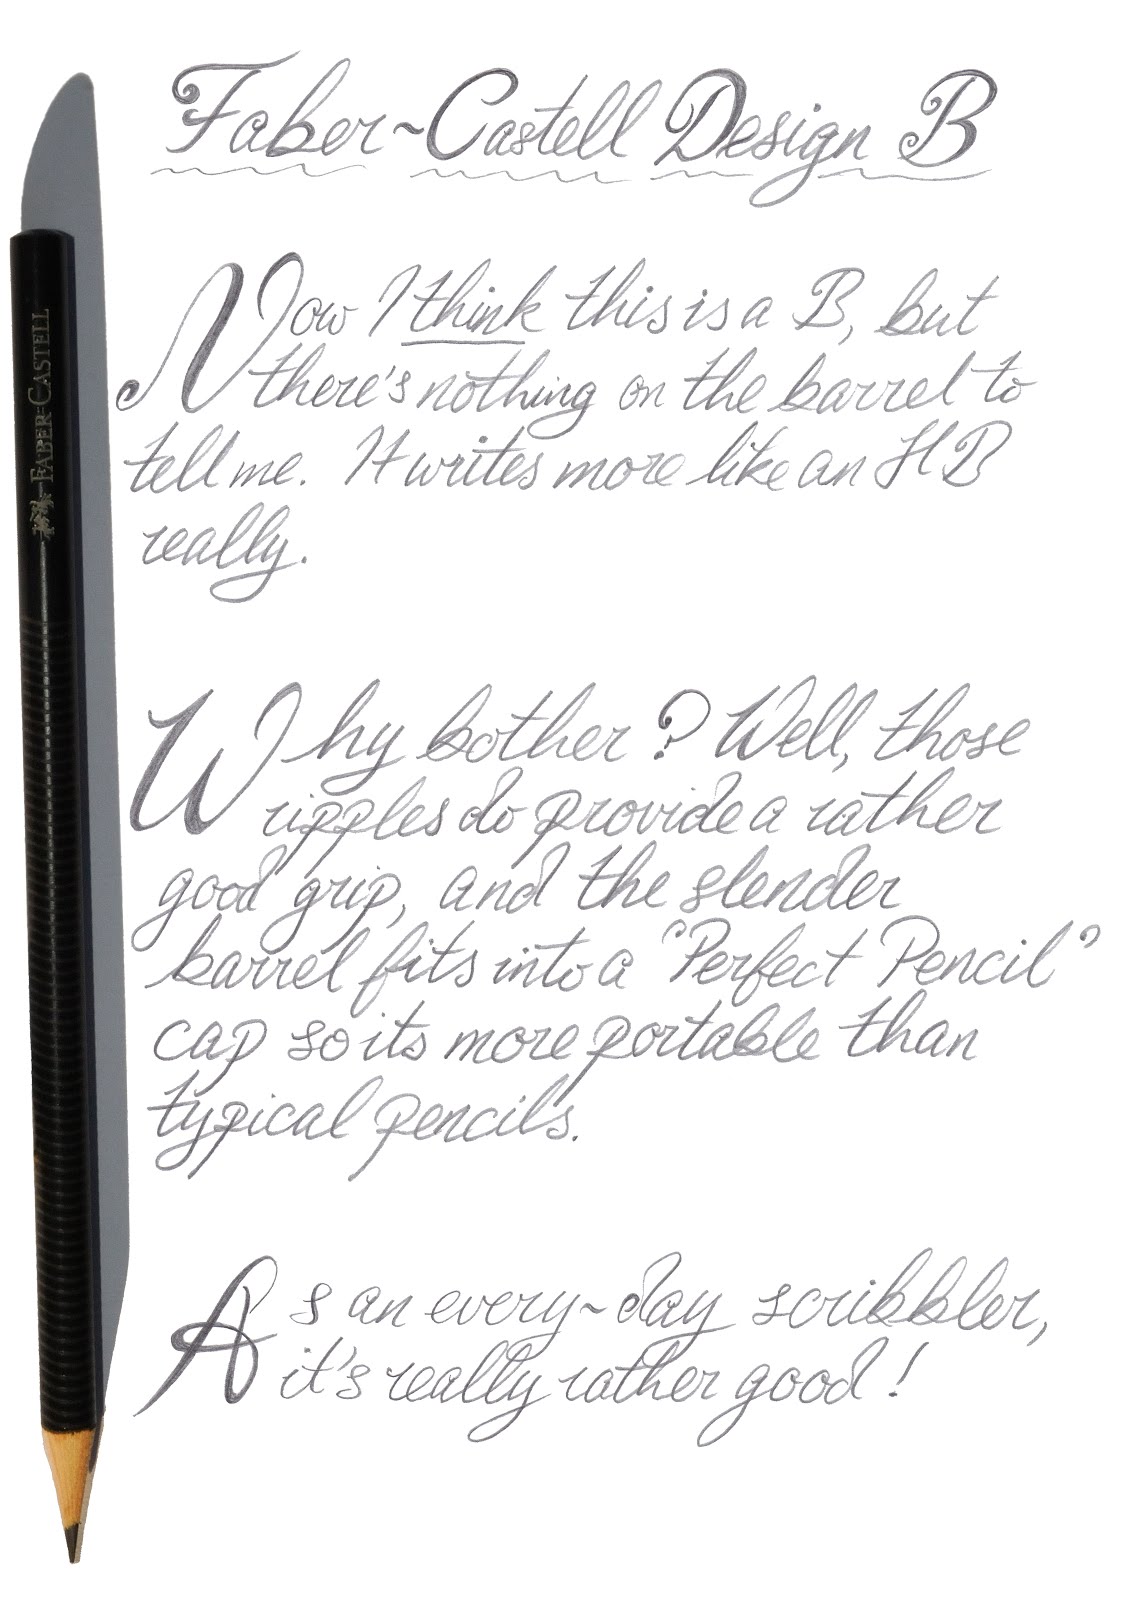 Faber~Castell Design B
Now I think this is a B, but
there's nothing on the barrel to
tell me. It writes more like an HB
really.
Why bother? Well, those
ripples do provide a rather
good grip, and the slender
barrel fits into a "Perfect Pencil"
cap so its more portable than
typical pencils.
As an every~day scribbler,
it's really rather good!
FABER-CASTELL